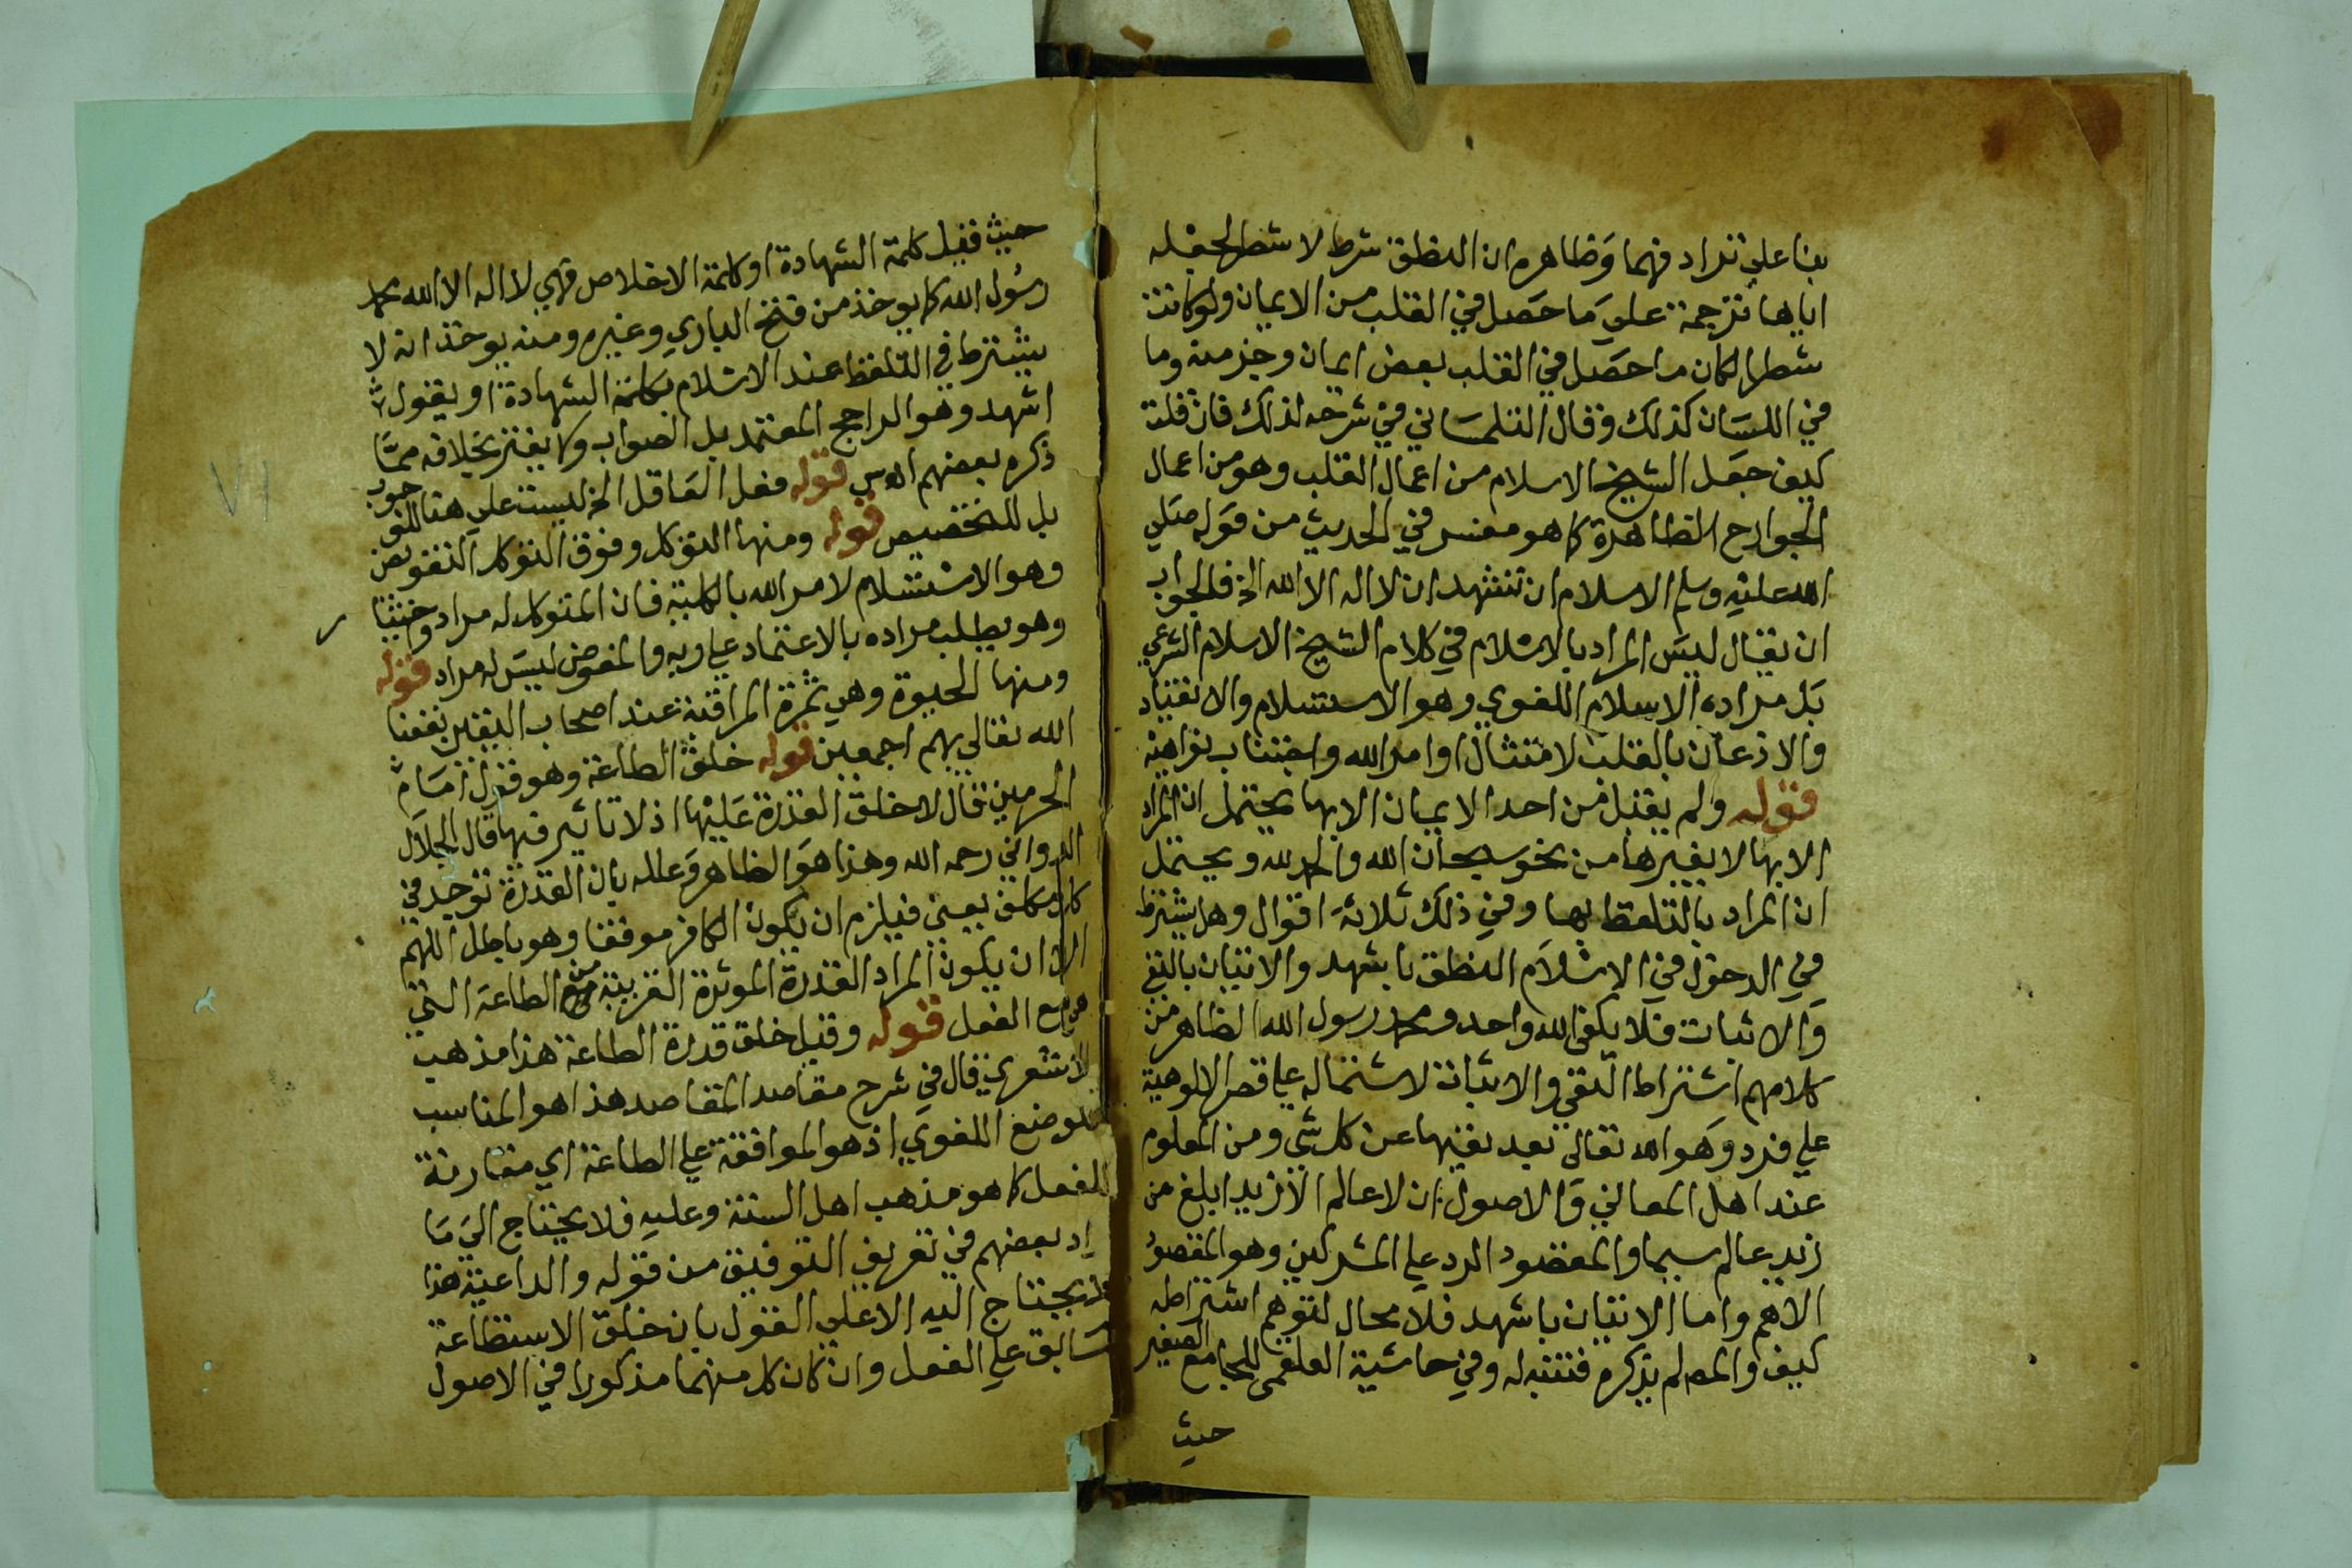 بنا على ترادفهما وظاهره ان النطق شرط لا شطر لجعله
اياها ترجمة على ما حصل في القلب من الايمان ولو كانت
شطرا لكان ما حصل في القلب بعض ايمان وجز منه وما
في اللسان كذلك وقال التلمساني في شرحه لذلك فان قلت
كيف جعل الشيخ الاسلام من اعمال القلب وهو من اعمال
الجوارح الظاهرة كما هو مفسر في الحديث من قوله صلي
الله عليه وسلم الاسلام ان تشهد ان لا اله الا الله الخ فالجواب
ان يقال ليس المراد بالاسلام في كلام الشيخ الاسلام الشرعي
بل مراده الاسلام اللغوي وهو الاستسلام والانقياد
والاذعان بالقلب لامتثال اوامر الله واجتناب نواهيه
قوله ولم يقبل من احد الايمان الا بها يحتمل ان المراد
الا بها لا بغيرها من نحو سبحان الله والحمد لله ويحتمل
ان المراد بالتلفظ بها وفي ذلك ثلاثة اقوال وهل يشترط
في الدخول في الاسلام النطق باشهد والاتيان بالنفي
والاثبات فلا يكفي الله واحد ومحمد رسول الله الظاهر من
كلامهم اشتراط النفي والاثبات لاشتماله علي قصر الالوهية
علي فرد وهو الله تعالى بعد نفيها عن كل شي ومن المعلوم
عند اهل المعاني والاصول ان لا عالم الا زيد ابلغ من
زيد عالم سيما والمقصود الرد علي المشركين وهو المقصود
الاهم واما الاتيان باشهد فلا مجال لتوهم اشتراطه
كيف والمص لم يذكره فتنبه له وفي حاشية العلقمي للجامع الصغير
حيث
حيث قيل كلمة الشهادة او كلمة الاخلاص فهي لا اله الا الله محمد
رسول الله كما يوخذ من فتح الباري وغيره ومنه يوخذ انه لا
يشترط في التلفظ عند الاسلام بكلمة الشهادة او يقول
اشهد وهو الراجح المعتمد بل الصواب ولا يغتر بخلافه مما
ذكره بعضهم قوله فعل العاقل الخ ليست علي هنا للوجوب
بل للتخصيص قوله ومنها التوكل وفوق التوكل التفويض
وهو الاستسلام لامر الله بالكلية فان المتوكل له مراد
وهو يطلب مراده بالاعتماد علي ربه والمفوض ليس له مراد قوله
ومنها الحيوة وهي ثمرة المراقبة عند اصحاب اليقين نفعنا
الله تعالى بهم اجمعين قوله خلق الطاعة وهو قول امام
الحرمين قال لا خلق القدرة عليها اذ لا تاثير فيها قال الجلال
الدواني رحمه الله وهذا هو الظاهر وعلله بان القدرة توجد في
كل مكلف يعني فيلزم ان يكون الكافر موفقا وهو باطل اللهم
الا ان يكون المراد القدرة الموثرة القريبة من الطاعة التي
هي مع الفعل قوله وقيل خلق قدرة الطاعة هذا مذهب
الاشعري قال في شرح مقاصد المقاصد هذا هو المناسب
للوضع اللغوي اذ هو الموافقة علي الطاعة اي مقارنة
للفعل كما هو مذهب اهل السنة وعليه فلا يحتاج الي ما
زاد بعضهم في تعريف التوفيق من قوله والداعية هذا
يحتاج اليه الا على القول بان خلق الاستطاعة
سابق علي الفعل وان كان كل منهما مذكورا في الاصول